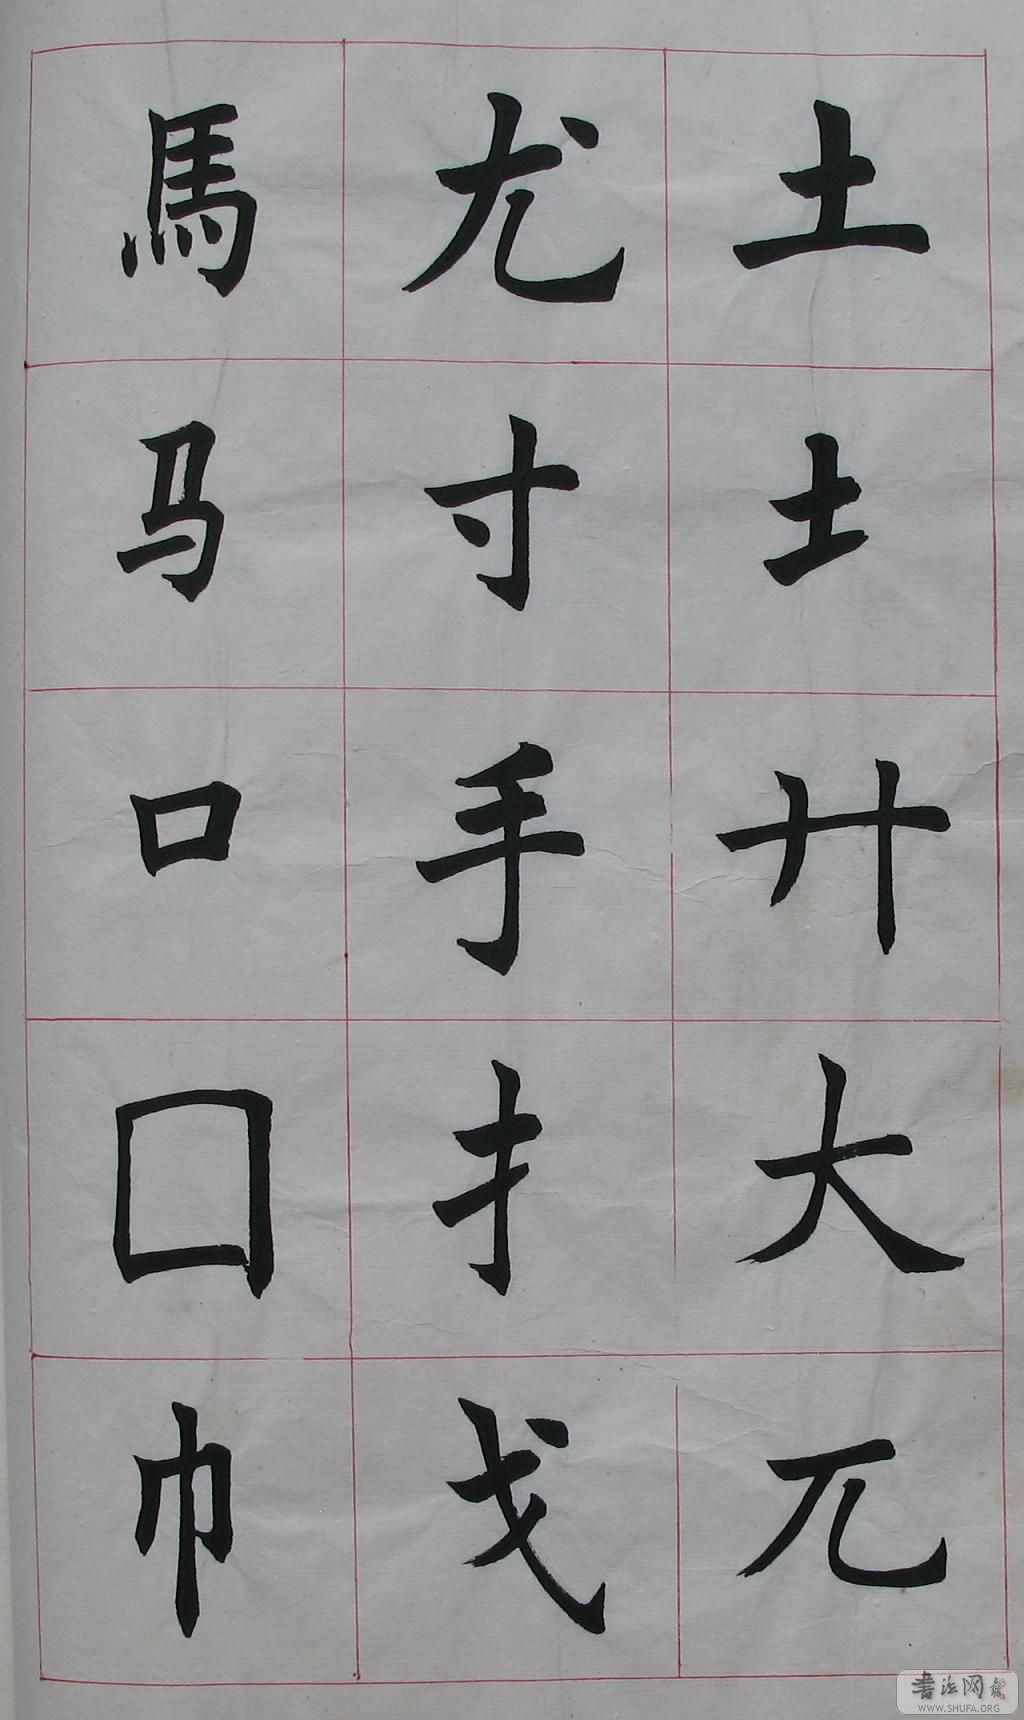 土土廾大兀
尤寸手扌戈
馬马口囗巾
書法网
WWW.SHUFA.ORG